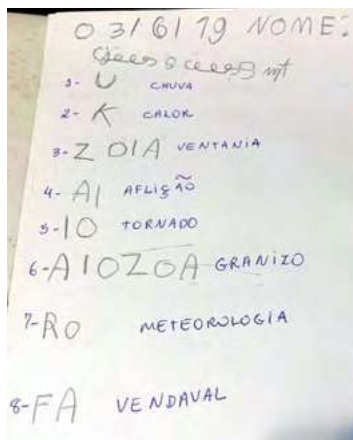 0 3/6/19 NOME:
1- U CHUVA
2- K CALOR
3- Z OIA VENTANIA
4- AI AFLIÇÃO
5- IO TORNADO
6- AIOZOA GRANIZO
7- RO METEOROLOGIA
8- FA VENDAVAL